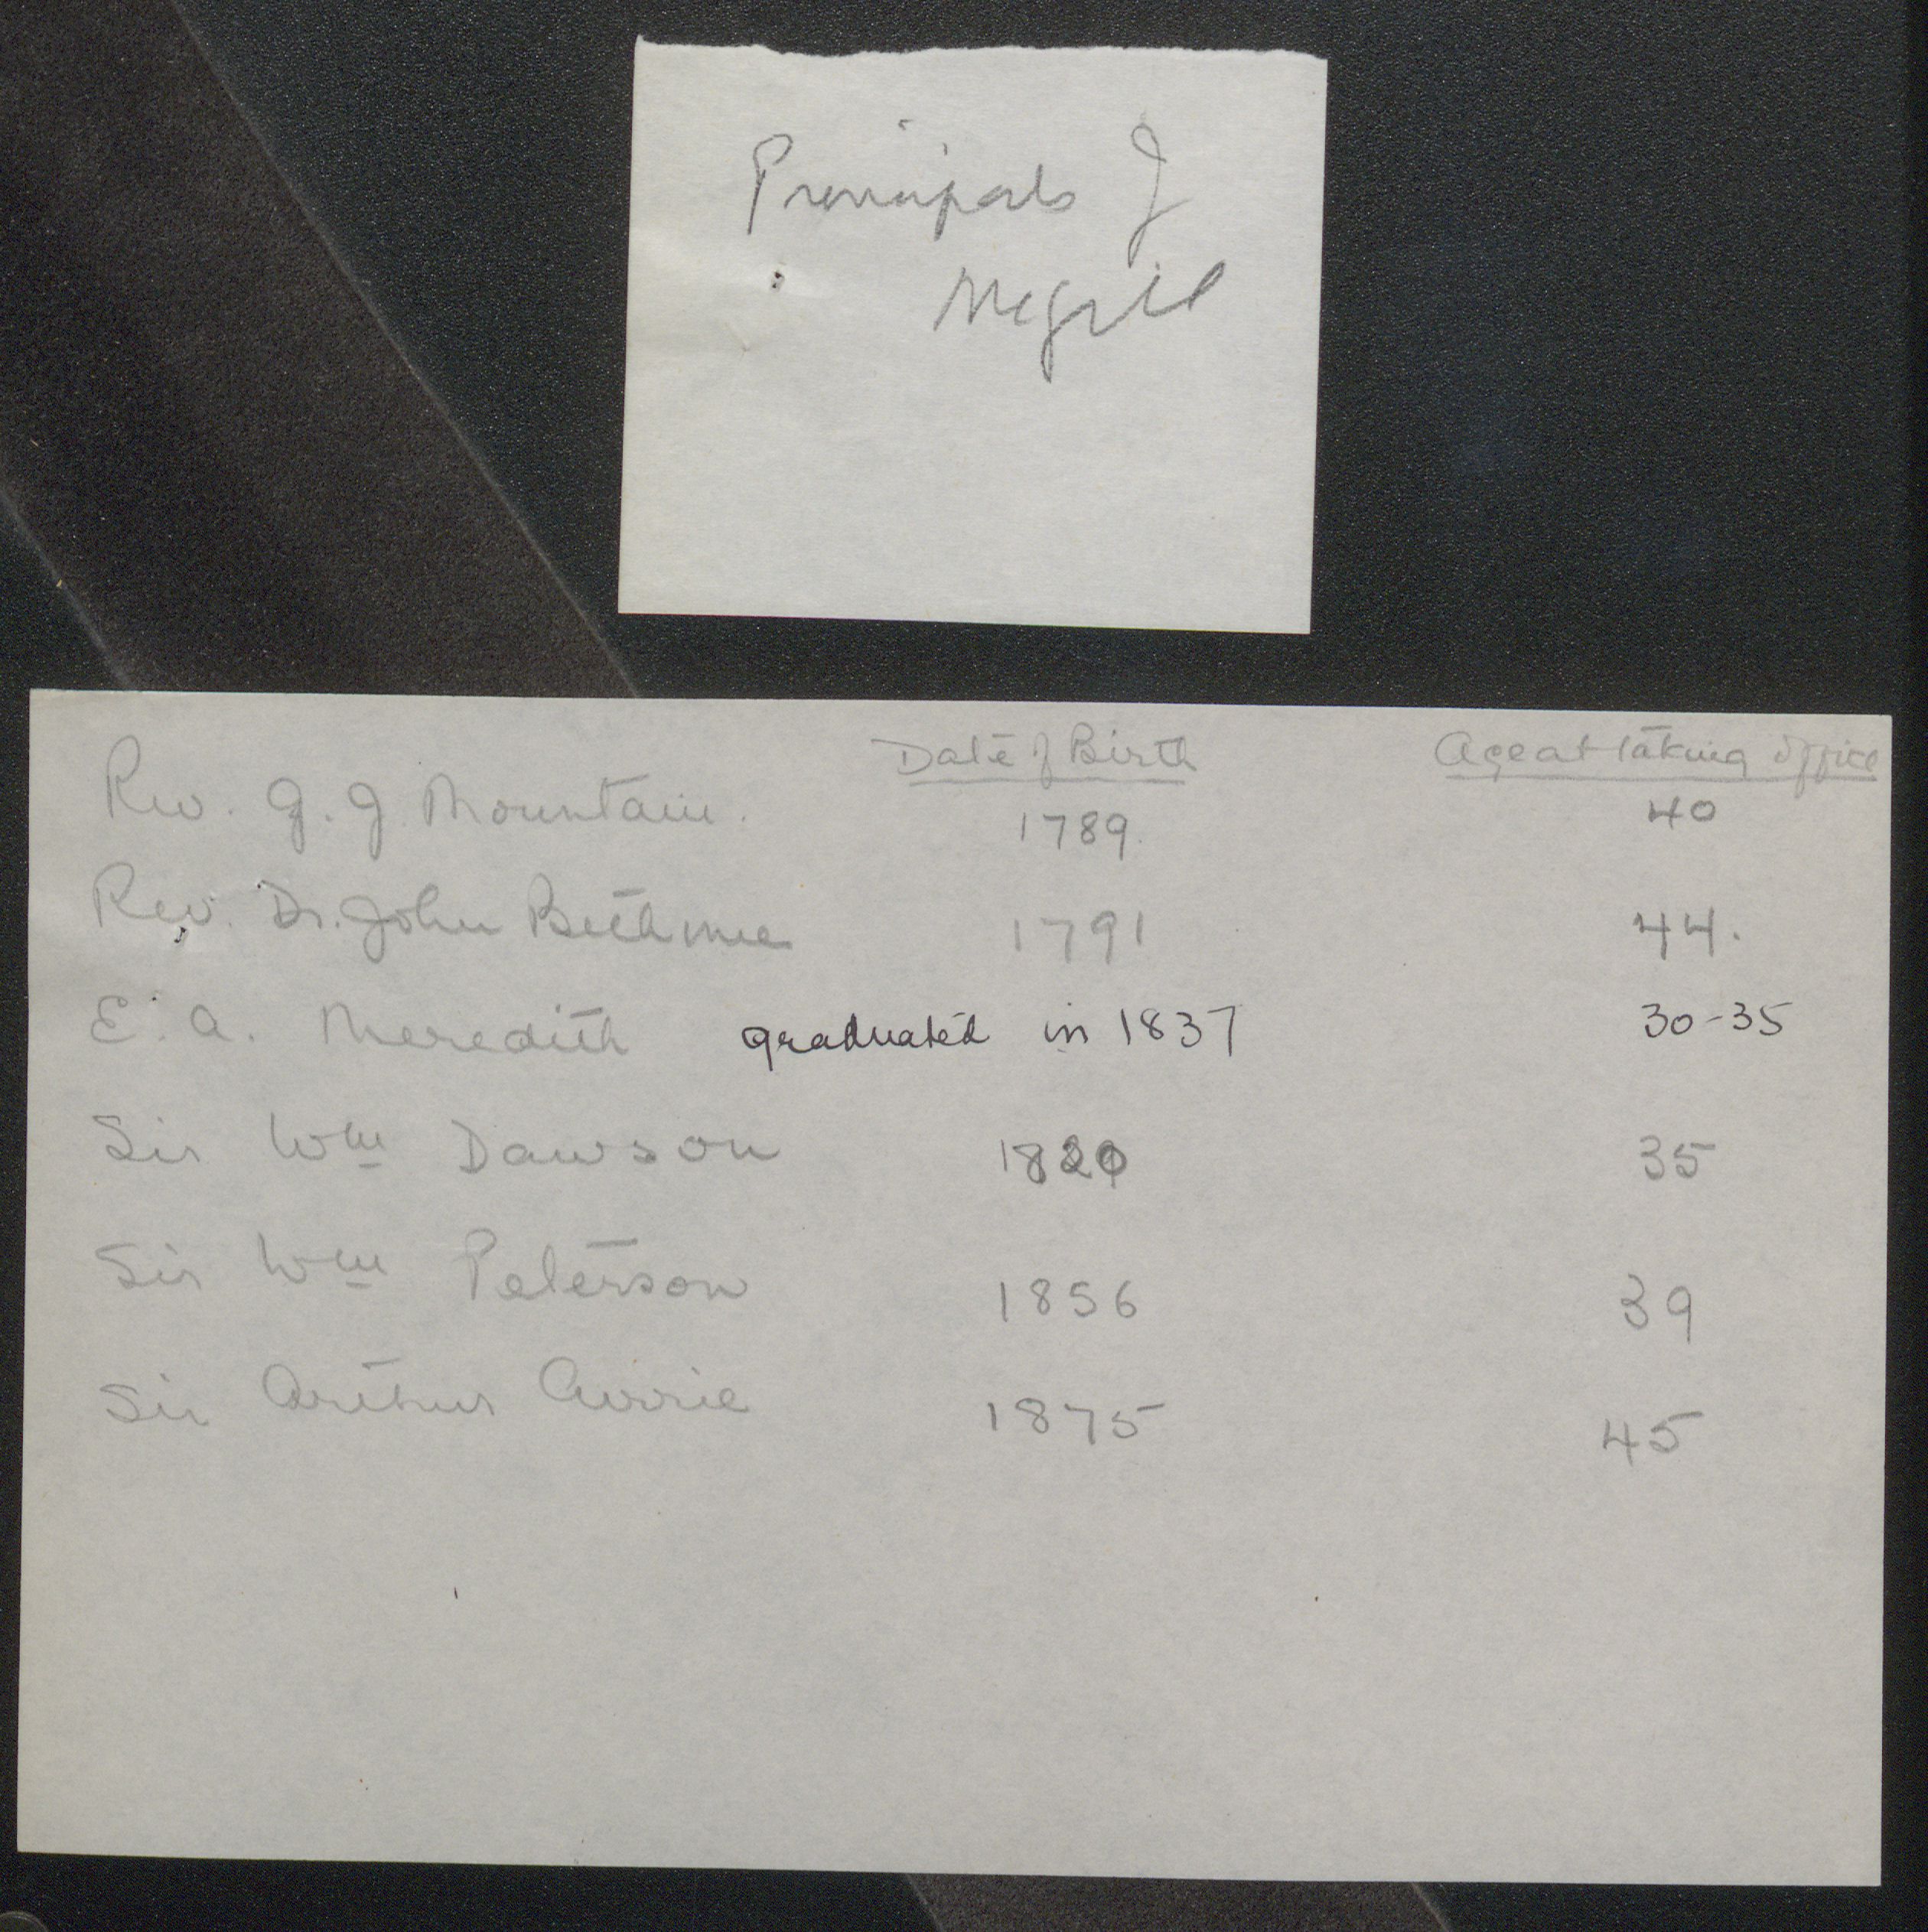 Principals of
McGill
Date of Birth Age at taking office
Rev. G. J. Mountain. 1789. 40
Rev. Dr. John Bethune 1791 44.
E. A. Meredith graduated in 1837 30-35
Sir Wm Dawson 1820 35
Sir Wm Peterson 1856 39
Sir Arthur Currie 1875 45